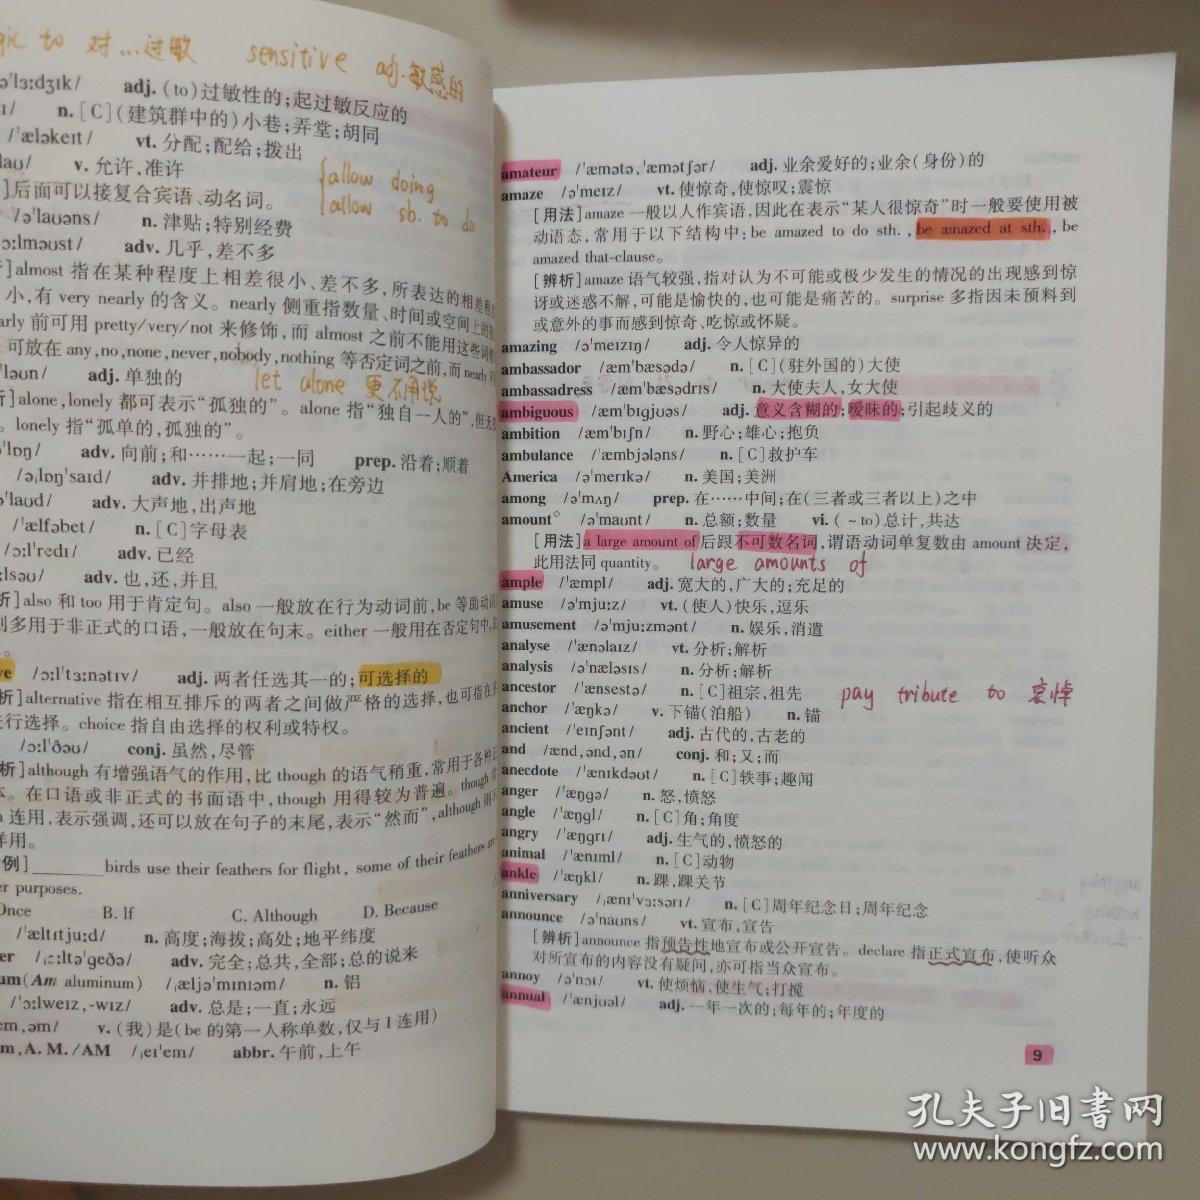 to 对…过敏 sensitive adj.敏感的
adj. (to)过敏性的;起过敏反应的
n. [C](建筑群中的)小巷;弄堂;胡同
/ˈæləkeɪt/ vt. 分配;配给;拨出
v. 允许,准许
后面可以接复合宾语、动名词。
allow doing
allow sb. to do
/əˈlaʊəns/ n. 津贴;特别经费
adv. 几乎,差不多
almost 指在某种程度上相差很小、差不多,所表达的相差程
小,有 very nearly 的含义。nearly 侧重指数量、时间或空间上的
前可用 pretty/very/not 来修饰,而 almost 之前不能用这些词
可放在 any,no,none,never,nobody,nothing 等否定词之前,而 nearly
adj. 单独的 let alone 更不用说
alone,lonely 都可表示“孤独的”。alone 指“独自一人的”,但无
lonely 指“孤单的,孤独的”。
adv. 向前;和……一起;一同 prep. 沿着;顺着
/əˌlɒŋˈsaɪd/ adv. 并排地;并肩地;在旁边
adv. 大声地,出声地
/ˈælfəbet/ n. [C]字母表
/ɔːlˈredɪ/ adv. 已经
adv. 也,还,并且
also 和 too 用于肯定句。also 一般放在行为动词前,be 等助动词
多用于非正式的口语,一般放在句末。either 一般用在否定句中,
/ɔːlˈtɜːnətɪv/ adj. 两者任选其一的;可选择的
alternative 指在相互排斥的两者之间做严格的选择,也可指在
进行选择。choice 指自由选择的权利或特权。
/ɔːlˈðəʊ/ conj. 虽然,尽管
although 有增强语气的作用,比 though 的语气稍重,常用于各种正
在口语或非正式的书面语中,though 用得较为普遍。though
连用,表示强调,还可以放在句子的末尾,表示“然而”,although 则不
样用。
例]______ birds use their feathers for flight, some of their feathers are
purposes.
Once B. If C. Although D. Because
/ˈæltɪtjuːd/ n. 高度;海拔;高处;地平纬度
/ˌɔːltəˈgeðə/ adv. 完全;总共,全部;总的说来
(Am aluminum) /ˌæljəˈmɪnɪəm/ n. 铝
/ˈɔːlweɪz,-wɪz/ adv. 总是;一直;永远
v. (我)是(be 的第一人称单数,仅与 I 连用)
A. M. /AM /ˌeɪˈem/ abbr. 午前,上午
amateur /ˈæmətə,ˈæmətʃər/ adj. 业余爱好的;业余(身份)的
amaze /əˈmeɪz/ vt. 使惊奇,使惊叹;震惊
[用法]amaze 一般以人作宾语,因此在表示“某人很惊奇”时一般要使用被
动语态,常用于以下结构中:be amazed to do sth. ,be amazed at sth. ,be
amazed that-clause。
[辨析]amaze 语气较强,指对认为不可能或极少发生的情况的出现感到惊
讶或迷惑不解,可能是愉快的,也可能是痛苦的。surprise 多指因未预料到
或意外的事而感到惊奇、吃惊或怀疑。
amazing /əˈmeɪzɪŋ/ adj. 令人惊异的
ambassador /æmˈbæsədə/ n. [C](驻外国的)大使
ambassadress /æmˈbæsədrɪs/ n. 大使夫人,女大使
ambiguous /æmˈbɪgjʊəs/ adj. 意义含糊的;暧昧的;引起歧义的
ambition /æmˈbɪʃn/ n. 野心;雄心;抱负
ambulance /ˈæmbjələns/ n. [C]救护车
America /əˈmerɪkə/ n. 美国;美洲
among /əˈmʌŋ/ prep. 在……中间;在(三者或三者以上)之中
amount◇ /əˈmaʊnt/ n. 总额;数量 vi. (~to)总计,共达
[用法]a large amount of 后跟不可数名词,谓语动词单复数由 amount 决定,
此用法同 quantity。 large amounts of
ample /ˈæmpl/ adj. 宽大的,广大的;充足的
amuse /əˈmjuːz/ vt. (使人)快乐,逗乐
amusement /əˈmjuːzmənt/ n. 娱乐,消遣
analyse /ˈænəlaɪz/ vt. 分析;解析
analysis /əˈnæləsɪs/ n. 分析;解析
ancestor /ˈænsestə/ n. [C]祖宗,祖先 pay tribute to 哀悼
anchor /ˈæŋkə/ v. 下锚(泊船) n. 锚
ancient /ˈeɪnʃənt/ adj. 古代的,古老的
and /ænd,ənd,ən/ conj. 和;又;而
anecdote /ˈænɪkdəʊt/ n. [C]轶事;趣闻
anger /ˈæŋgə/ n. 怒,愤怒
angle /ˈæŋgl/ n. [C]角;角度
angry /ˈæŋgrɪ/ adj. 生气的,愤怒的
animal /ˈænɪml/ n. [C]动物
ankle /ˈæŋkl/ n. 踝,踝关节
anniversary /ˌænɪˈvɜːsərɪ/ n. [C]周年纪念日;周年纪念
announce /əˈnaʊns/ vt. 宣布,宣告
[辨析]announce 指预告性地宣布或公开宣告。declare 指正式宣布,使听众
对所宣布的内容没有疑问,亦可指当众宣布。
annoy /əˈnɔɪ/ vt. 使烦恼,使生气;打搅
annual /ˈænjʊəl/ adj. 一年一次的;每年的;年度的
9
孔夫子旧书网
www.kongfz.com